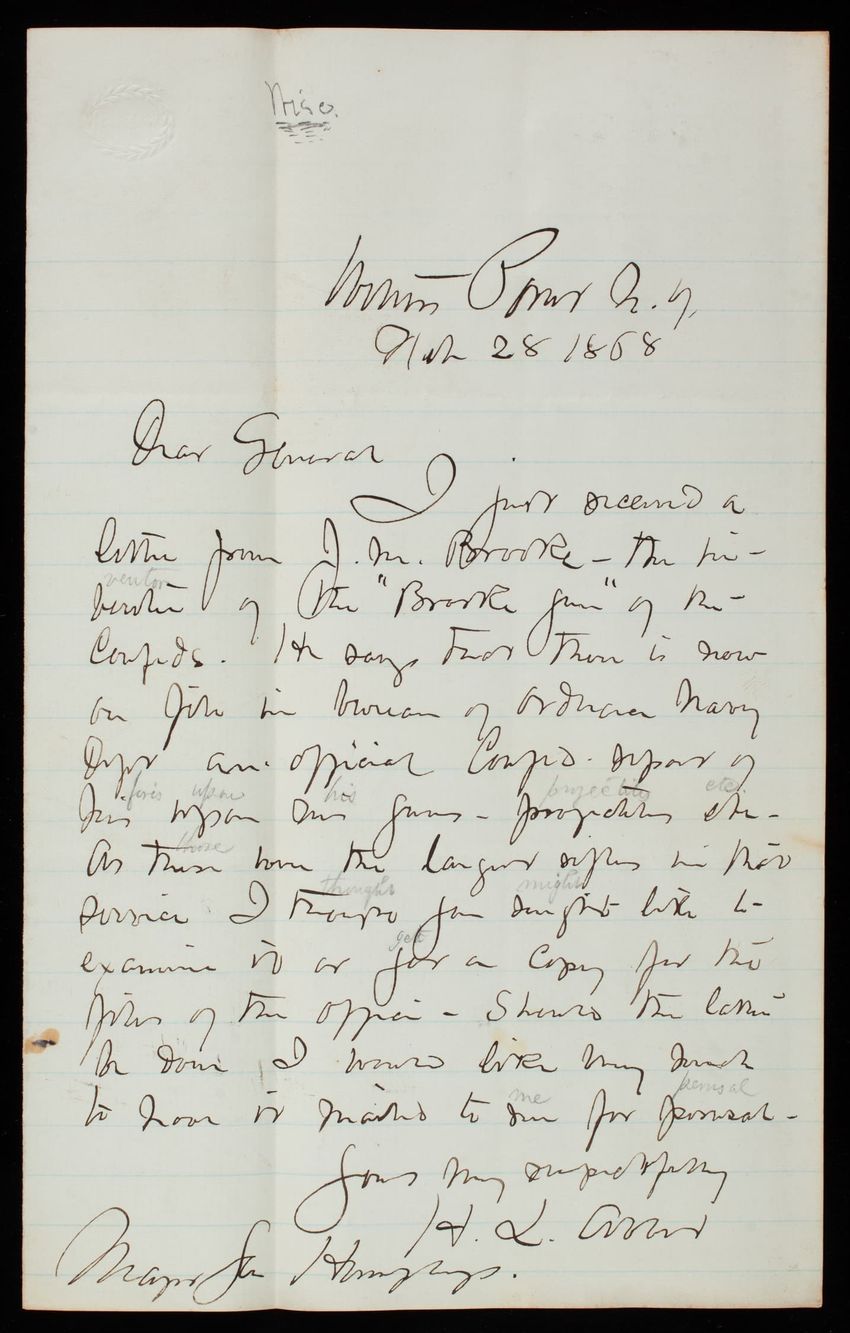 Misc.
Willets Point N. Y.
Feb 28 1868
Dear General
I just received a
letter from J. M. Brooke - the in-
ventor
ventor of the "Brooke gun" of the
Confeds. He says that there is now
on file in bureau of ordnance Navy
Dept an official Confed. report of
firis upon his projectiles etc
upon his guns - projectiles etc -
those
As these were the largest rifles in that
thought might
service I thought you might like to
get
examine it or get a copy for the
files of the office - Should the latter
be done I would like very much
me perusal
to have it mailed to me for perusal -
Yours very respectfully
H. L. Abbot
Major Gen Humphreys.